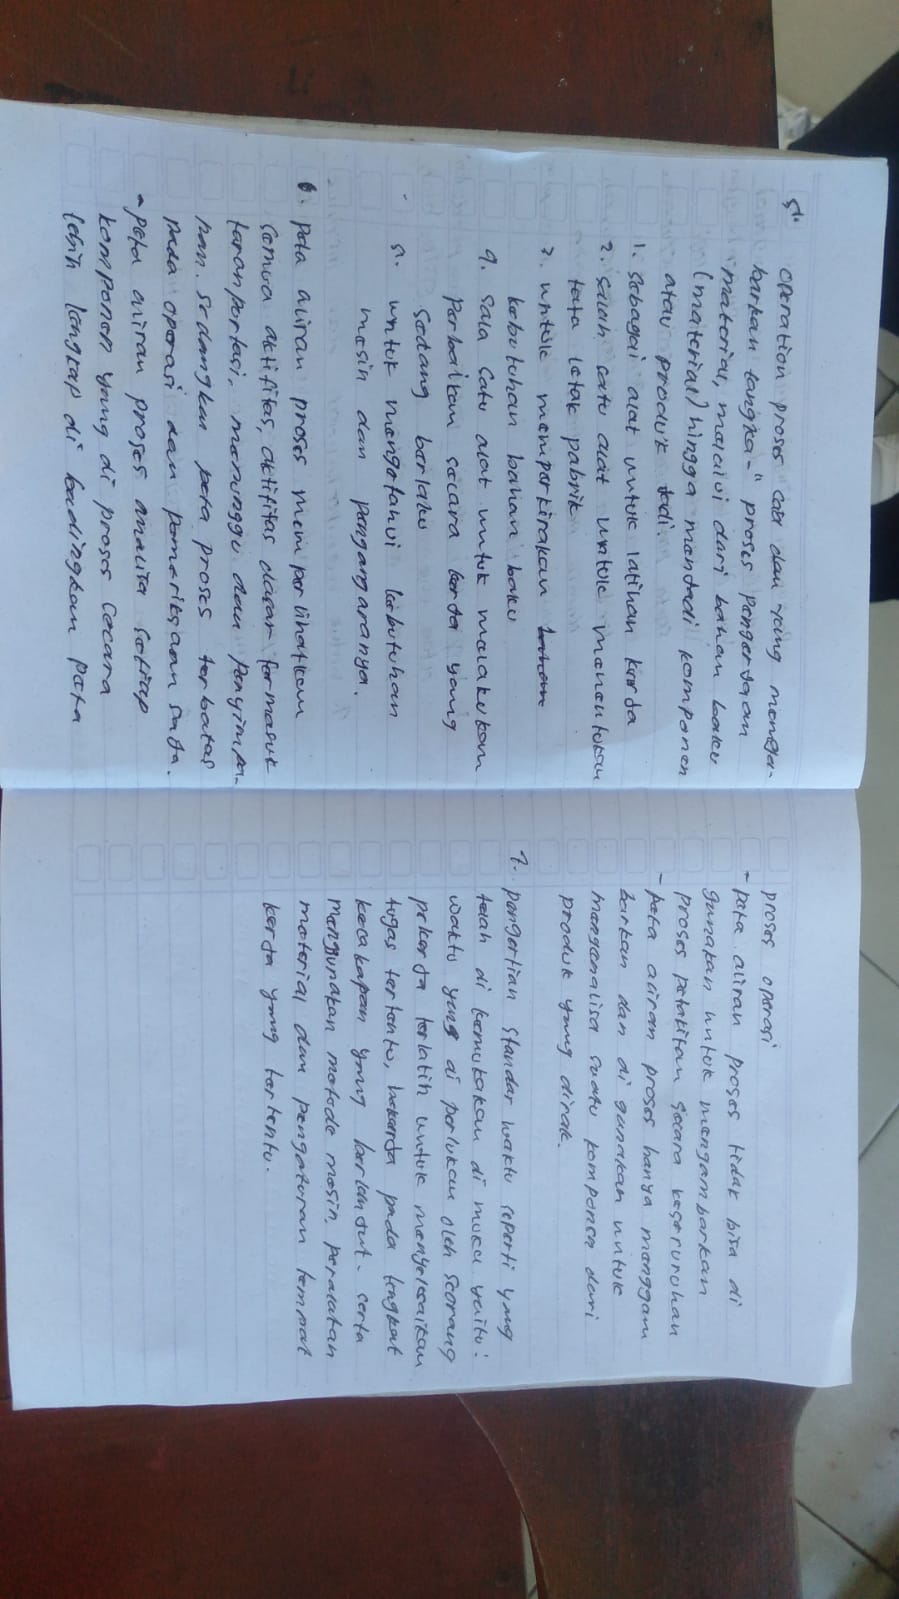 5. operation proses cart dan yaing mengga-
barkan langka-" proses pengerjaan
material, malaivi dari bahan baku
(material) hingga mandadi komponen
atau produk jadi
1. sebagai alat untuk latihan kerja
2. salah satu alat untuk menentukan
tata letak pabrik
3. untuk memperkirakan
kebutuhan bahan baku
4. sala satu alat untuk melakukan
perbaikan secara kerda yang
sedang berlaku
5. untuk mengetahui kebutuhan
mesin dan penganggaranya.
6. peta aliran proses memperlihatkan
semua aktifitas, aktifitas dasar termasuk
tranportasi, menunggu dan penyimpa-
nan. sedangkan peta proses terbatas
pada operasi dan pemeriksaan saja.
- peta aliran proses analisa setiap
komponen yang di proses secara
lebih lengkap di bandingkan peta
proses operasi
- peta aliran proses tidak bisa di
gunakan untuk mengambarkan
proses perakitan secara keseruruhan
- peta aliran proses hanya menggam
barkan dan di gunakan untuk
menganalisa suatu komponen dari
produk yang dirak.
7. pengertian standar waktu seperti yang
telah di kemukakan di muka yaitu:
waktu yang di perlukan oleh seorang
pekerja terlatih untuk menyelesaikan
tugas tertentu, bekerja pada tingkat
kecakapan yang berlanjut. serta
menggunakan metode mesin, peralatan
material dan pengaturan tempat
kerja yang tertentu.